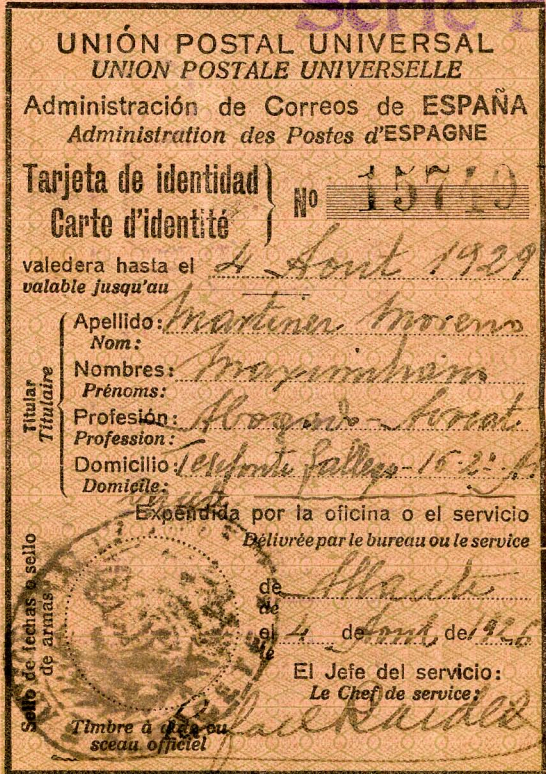 Serie
UNIÓN POSTAL UNIVERSAL
UNION POSTALE UNIVERSELLE
Administración de Correos de ESPAÑA
Administration des Postes d'ESPAGNE
Tarjeta de identidad
Carte d'identité
Nº 15749
valedera hasta el 4 Aout 1929
valable jusqu'au
Titular
Titulaire
Apellido: Martinez Moreno
Nom:
Nombres: Maximiliano
Prénoms:
Profesión: Abogado-Avocat
Profession:
Domicilio: Gallego-16-2º
Domicile:
Expendida por la oficina o el servicio
Délivrée par le bureau ou le service
de
de
el 4 de Aout de 1926
le
El Jefe del servicio:
Le Chef de service:
Sello de fechas o sello
de armas
Timbre à date ou
sceau officiel